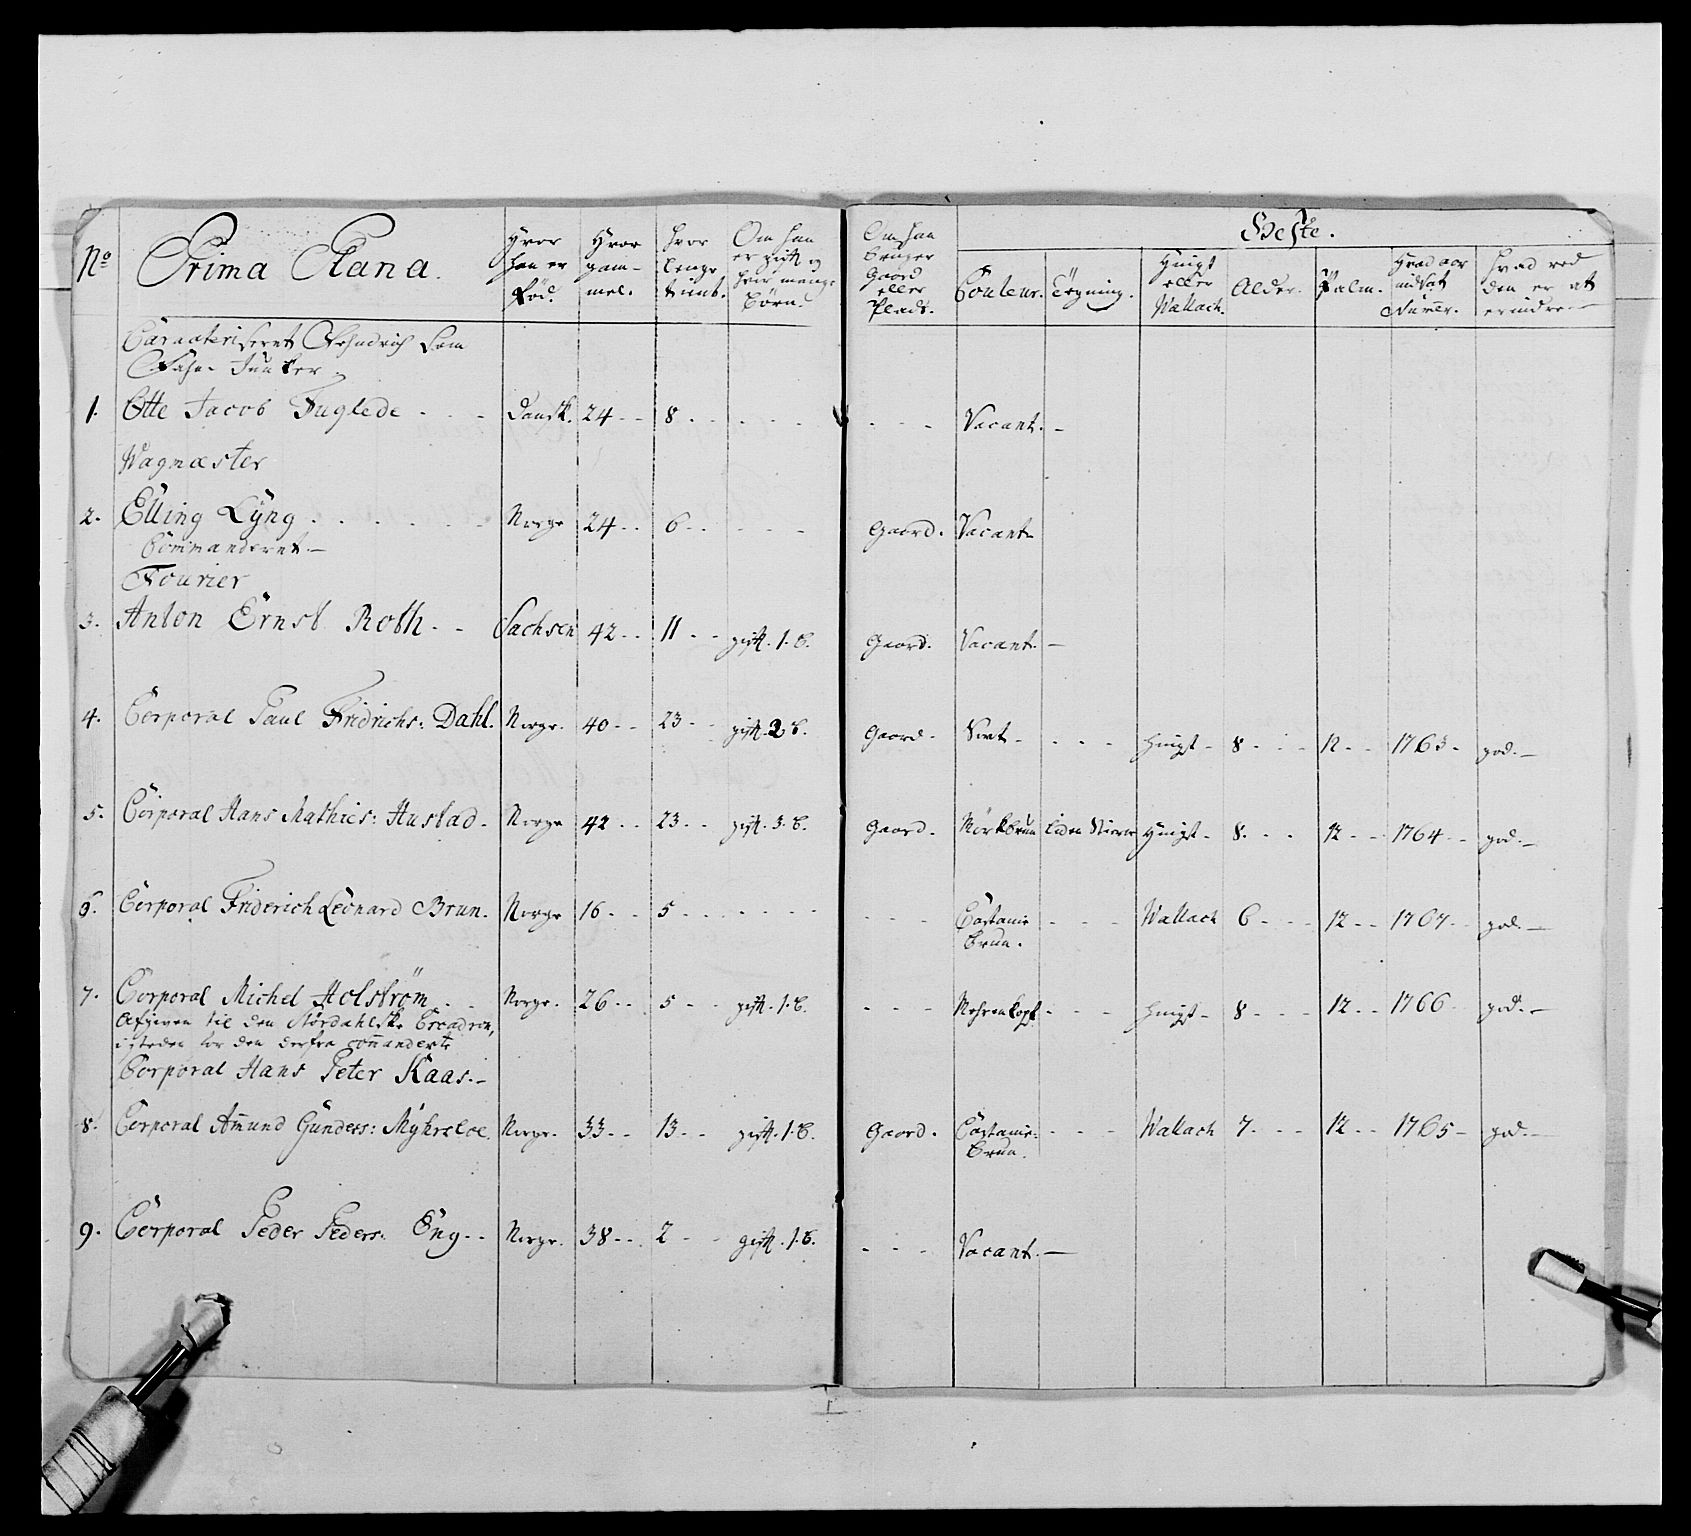 No Prima Plana. Hvor han er Fød. Hvor gam-mel. hvor lenge tient. Om han er gift og hvor mange börn. Om han bruger Gaard eller Plads. Heste. Couleur. Tegning. Hingst eller Wallach. Alder. Palm. Hvad aar indsat Numer. Hvad ved den er at erindre
Caracteriseret Fehndrich som
Fahn-Junker
1. Otte Jacob Fuglede - - - Dansk. 24 - - 8 - - - - - - - - Vacant. -
Wagmæster
2. Elling Lÿng . . . . . Norge 24 - - 6 - - - - - Gaard. Vacant -
Commanderet. -
Fourier
3. Anton Ernst Roth - - Sachsen 42 - - 11 - - gift. 1. B. Gaard. Vacant. -
4. Corporal Paul Fridrichs: Dahl. Norge. 40 - - 23 - - gift. 2 B. Gaard - Sort - - - - Hingst - 8 - - - 12 - - 1763 - god. -
5. Corporal Hans Mathies: Hustad - Norge 42 - - 23 - - gift. 3. B. Gaard. Mörkbrun liden Stierne Hingst - 8. - - - 12 - - 1764 - - god. -
6. Corporal Friderich Leonard Brun. Norge 16 - - 5 - - - - - - - - - Castanie - - - Wallach 6 - - - 12 - - 1767 - god. -
brun.
7. Corporal Michel Holström - - Norge. 26 - - 5 - - gift. 1. B. - - - Mohrenkopf - - - Hingst - 8 - - - 12 - - 1766 - god. -
Afgiven til den Stördahlske Escadron,
isteden for den derfra com̄anderte
Corporal Hans Peter Kaas. -
8. Corporal Am̄und Gunders: Mÿhrsloe. Norge. 33 - - 13 - - gift. 1. B. Gaord. Castanie- - - - Wallach 7 - - - 12 - - 1765 - god. -
brun.
9. Corporal Peder Peders: Eng - - Norge. 38 - - 2 - - gift. 1. B. - - - Vacant. -